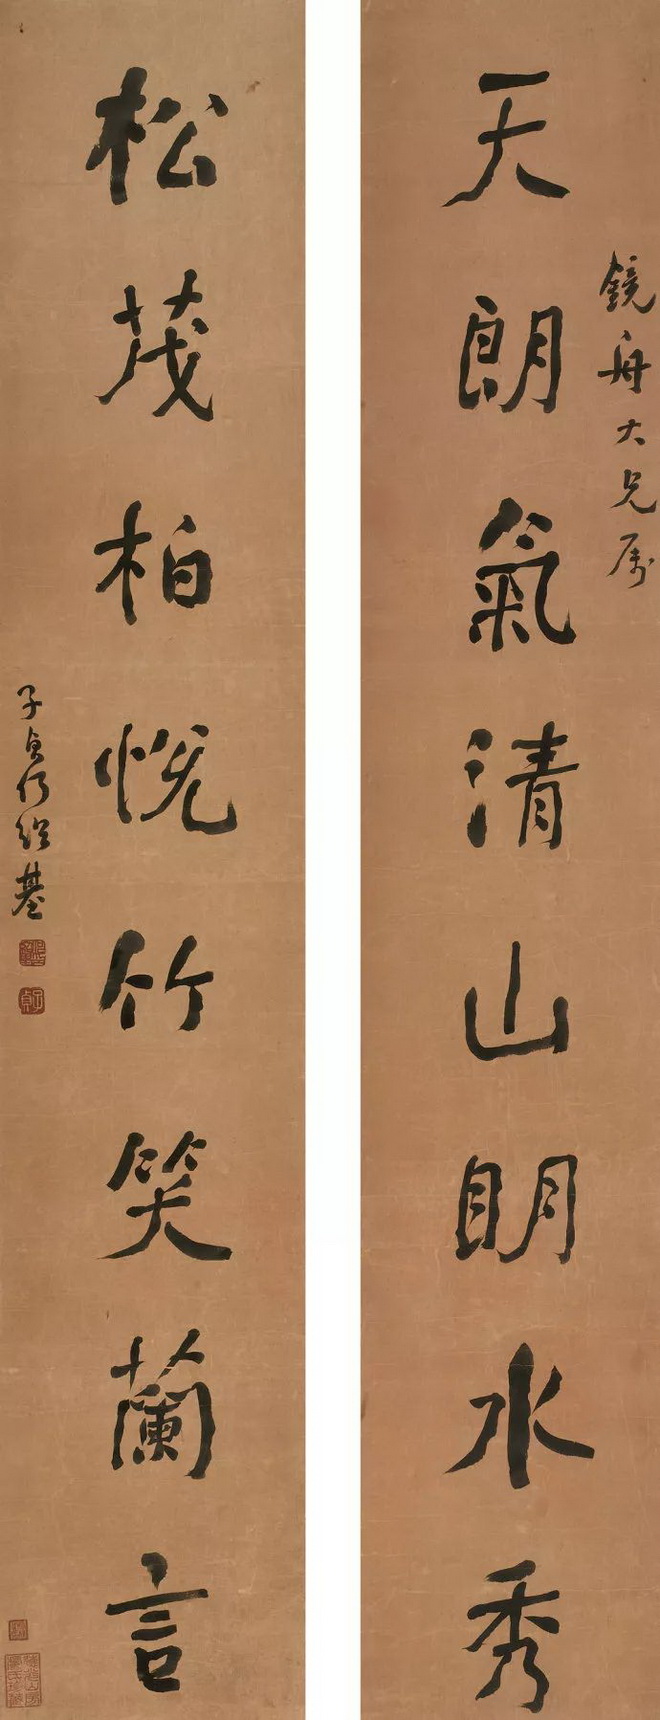 鏡舟大兄属
天朗氣清山明水秀
松茂柏悦竹笑蘭言
子貞何紹基